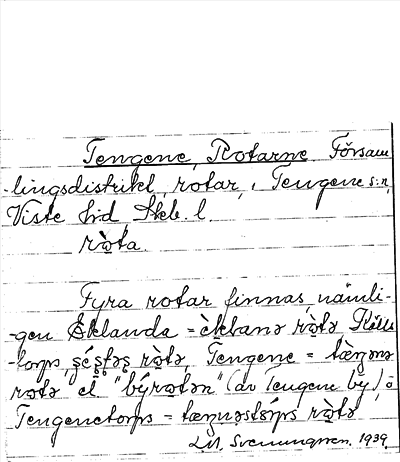 Tengene, Rotarne. Försam
-lingsdistrikt, rotar, i Tengene s:n,
Viste hd Skb. l.
rὼta.
Fyra rotar finnas, nämli-
-gen Eklanda = ὲkbanə rὼtə Källs
-torps, rὼtə, Tengene = tæ̀ŋənə
rωtə el. "býrωtən" (av Tengene by), o
Tengenetorps = rὼtə
Svenungsson. 1939